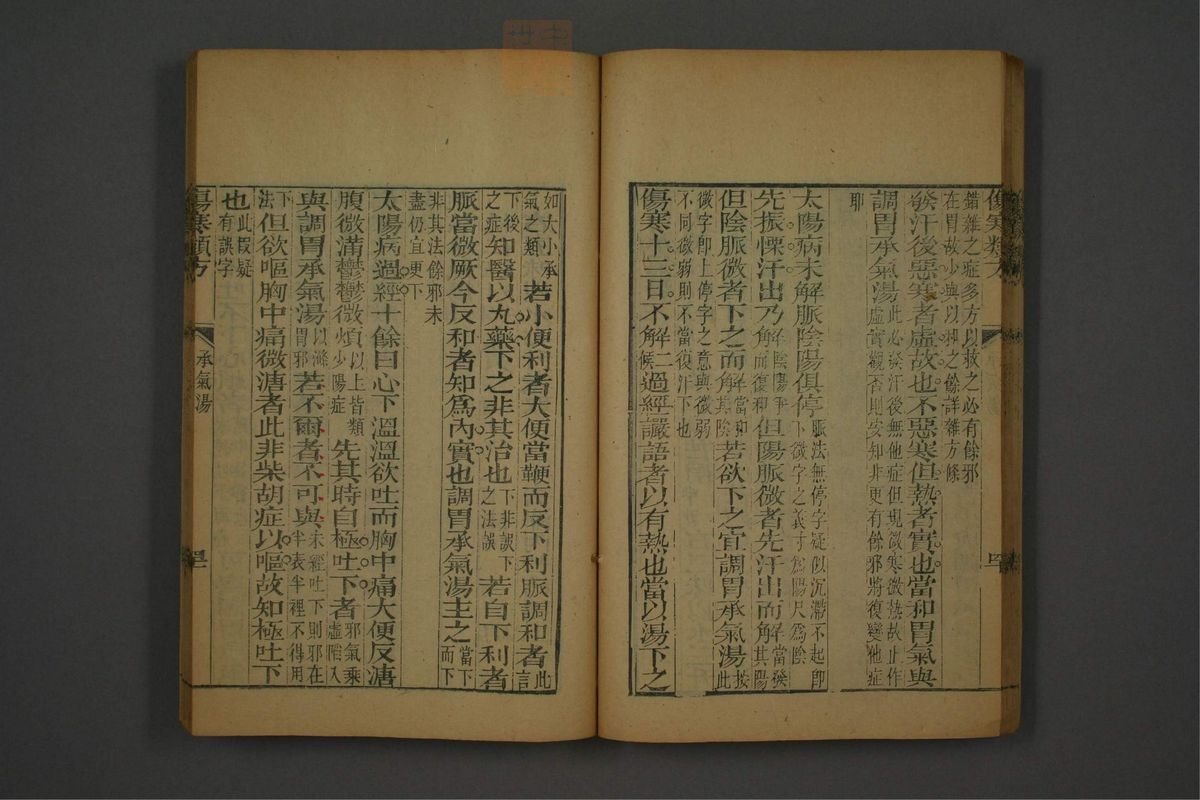 傷寒類方
錯雜之症多方以救之必有餘邪
在胃故少與以和之餘詳雜方條
發汗後惡寒者虛故也不惡寒但熱者實也當和胃氣與
調胃承氣湯此必發汗後無他症但現微寒微熱故止作
虛實觀否則安知非更有餘邪將復變他症
耶
太陽病未解脈陰陽俱停脈法無停字疑似沉滯不起即
下微字之義寸爲陽尺爲陰
先振慄汗出乃解陰陽爭
而復和但陽脈微者先汗出而解當發
其陽
但陰脈微者下之而解當和
其陰若欲下之宜調胃承氣湯按
此
微字即上停字之意與微弱
不同微弱則不當復汗下也
傷寒十三日不解二
候過經讝語者以有熱也當以湯下之
如大小承
氣之類若小便利者大便當鞕而反下利脈調和者此
言
下後
之症知醫以丸藥下之非其治也非誤下
下之法誤若自下利者
脈當微厥今反和者知爲內實也調胃承氣湯主之當下
而下
非其法餘邪未
盡仍宜更下
太陽病過經十餘日心下溫溫欲吐而胸中痛大便反溏
腹微滿鬱鬱微煩以上皆類
少陽症先其時自極吐下者邪氣乘
虛陷入
與調胃承氣湯以滌
胃邪若不爾者不可與未經吐下則邪在
半表半裡不得用
下
法但欲嘔胸中痛微溏者此非柴胡症以嘔故知極吐下
也此段疑
有誤字
傷寒類方
承氣湯